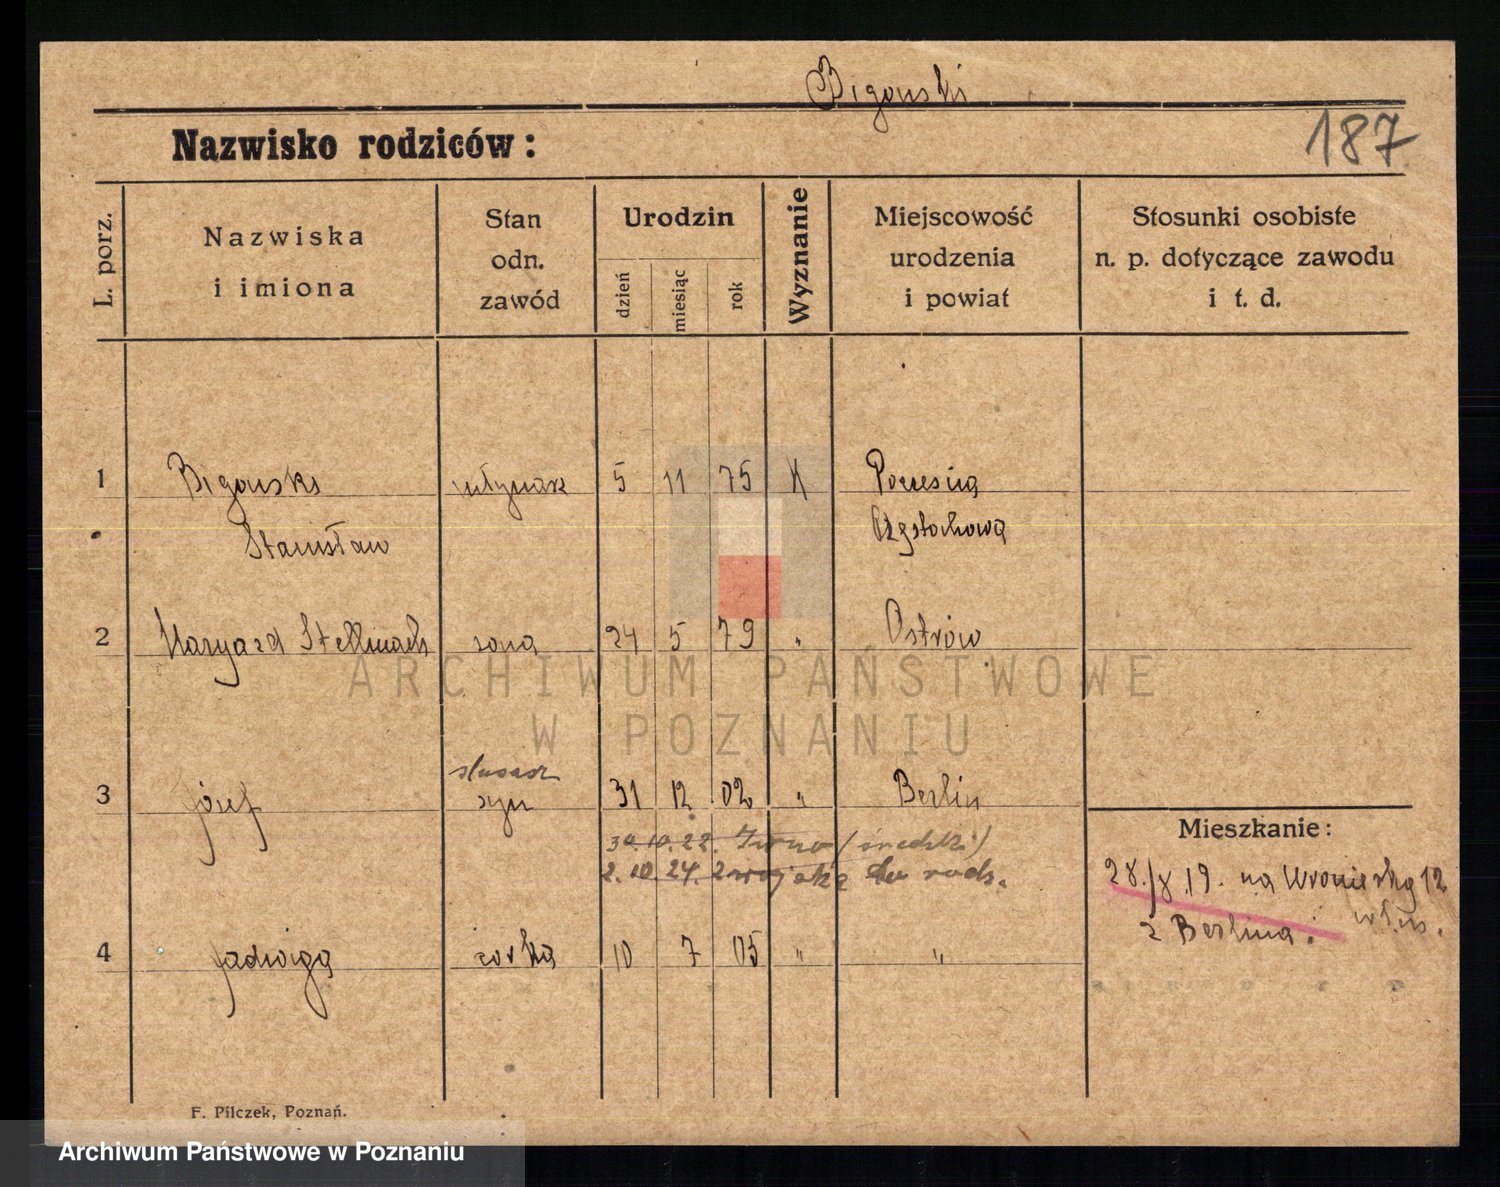 Bigański
187
Nazwisko rodziców:
L. porz.
Nazwiska
i imiona
Stan
odn.
zawód
Urodzin
dzień
miesiąc
rok
Wyznanie
Miejscowość
urodzenia
i powiat
Stosunki osobiste
n. p. dotyczące zawodu
i t. d.
1 Bigański młynarz 5 11 75 K
Stanisław Częstochowa
2 Stellmach żona 24 5 79 " Ostrów
ARCHIWUM PAŃSTWOWE
W POZNANIU
ślusarz
3 Józef syn 31 12 02 " Berlin
Mieszkanie:
30.10.22.
2.10.24. z wojska do rodz.
28./8.19. na Wroniecką 12
z Berlina.
4 Jadwiga córka 10 7 05 " "
F. Pilczek, Poznań.
Archiwum Państwowe w Poznaniu